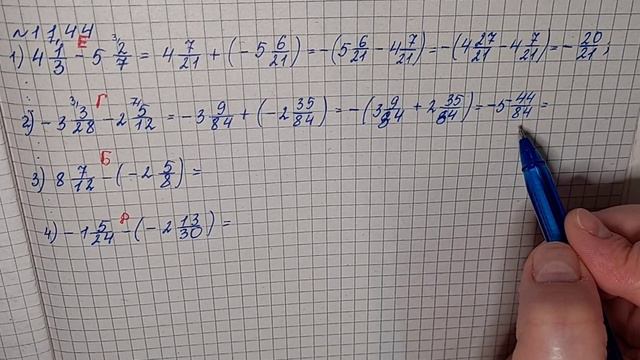 №1144
1) 4 1/3 - 5 2/7 = 4 7/21 + (-5 6/21) = -(5 6/21 - 4 7/21) = -(4 27/21 - 4 7/21) = - 20/21;
2) -3 3/28 - 2 5/12 = -3 9/84 + (-2 35/84) = -(3 9/84 + 2 35/84) = -5 44/84 =
3) 8 7/12 - (-2 5/8) =
4) -1 5/24 - (-2 13/30) =